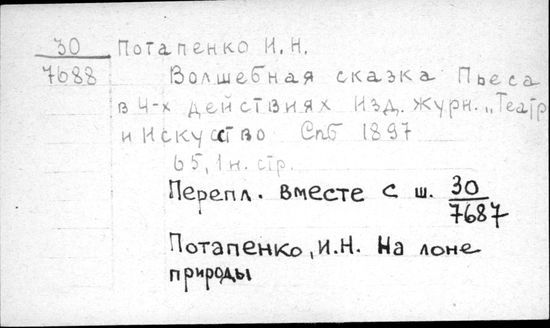 30 Потапенко И.Н.
7688 Волшебная сказка Пьеса
в 4-х действиях Изд. журн. „Театр
и Искусство Спб 1897
65,1н. стр.
Перепл. вместе с ш. 30
7687
Потапенко, И.Н. На лоне
природы